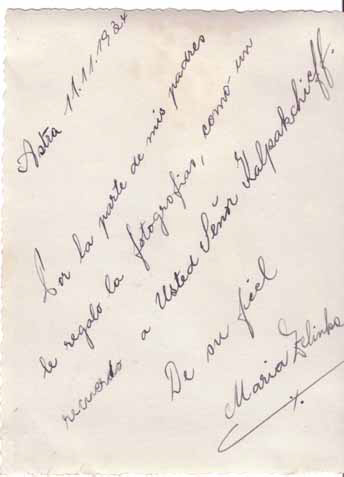 Astra 11.11.1934
Por la parte de mis padres
le regalo la fotografias, como un
recuerdo a Usted Señor Kalpakchieff.
De su fiel
Maria Zelinka